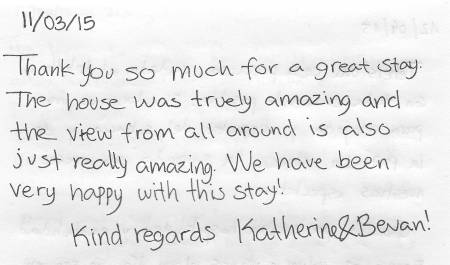 11/03/15
Thank you so much for a great stay.
The house was truely amazing and
the view from all around is also
just really amazing. We have been
very happy with this stay!
Kind regards Katherine&Bevan!